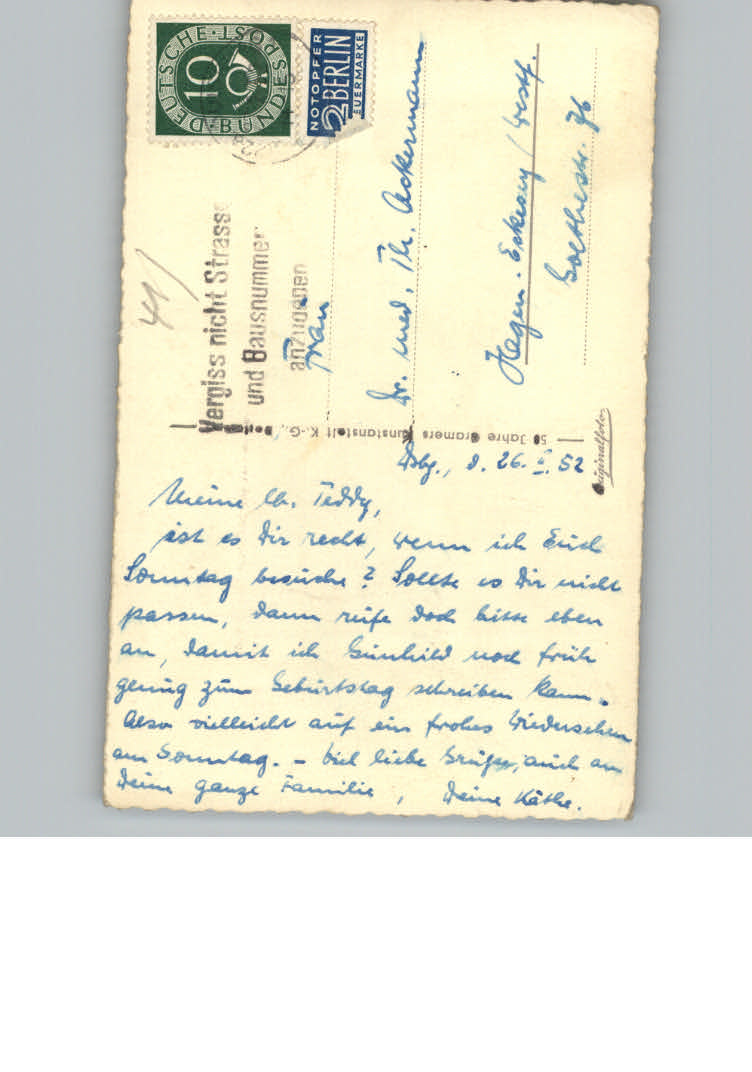 DEUTSCHE BUNDESPOST
10
NOTOPFER
2 BERLIN
STEUERMARKE
Vergiss nicht Strasse
und Hausnummer
anzugeben
Frau
Dr. med. Th. Ackermann
Hagen-Eckesey / Westf.
Goethestr. 76
50 Jahre Cramers Kunstanstalt K.-G.,
Originalfoto
Dbg., d. 26. 52
Meine lb. Teddy,
ist es Dir recht, wenn ich Euch
Sonntag besuche? Sollte es Dir nicht
passen, dann rufe doch bitte eben
an, damit ich Gunhild noch früh
genug zum Geburtstag schreiben kann.
Also vielleicht auf ein frohes Wiedersehen
am Sonntag. – Viel liebe Grüße, auch an
Deine ganze Familie, Deine Käthe.